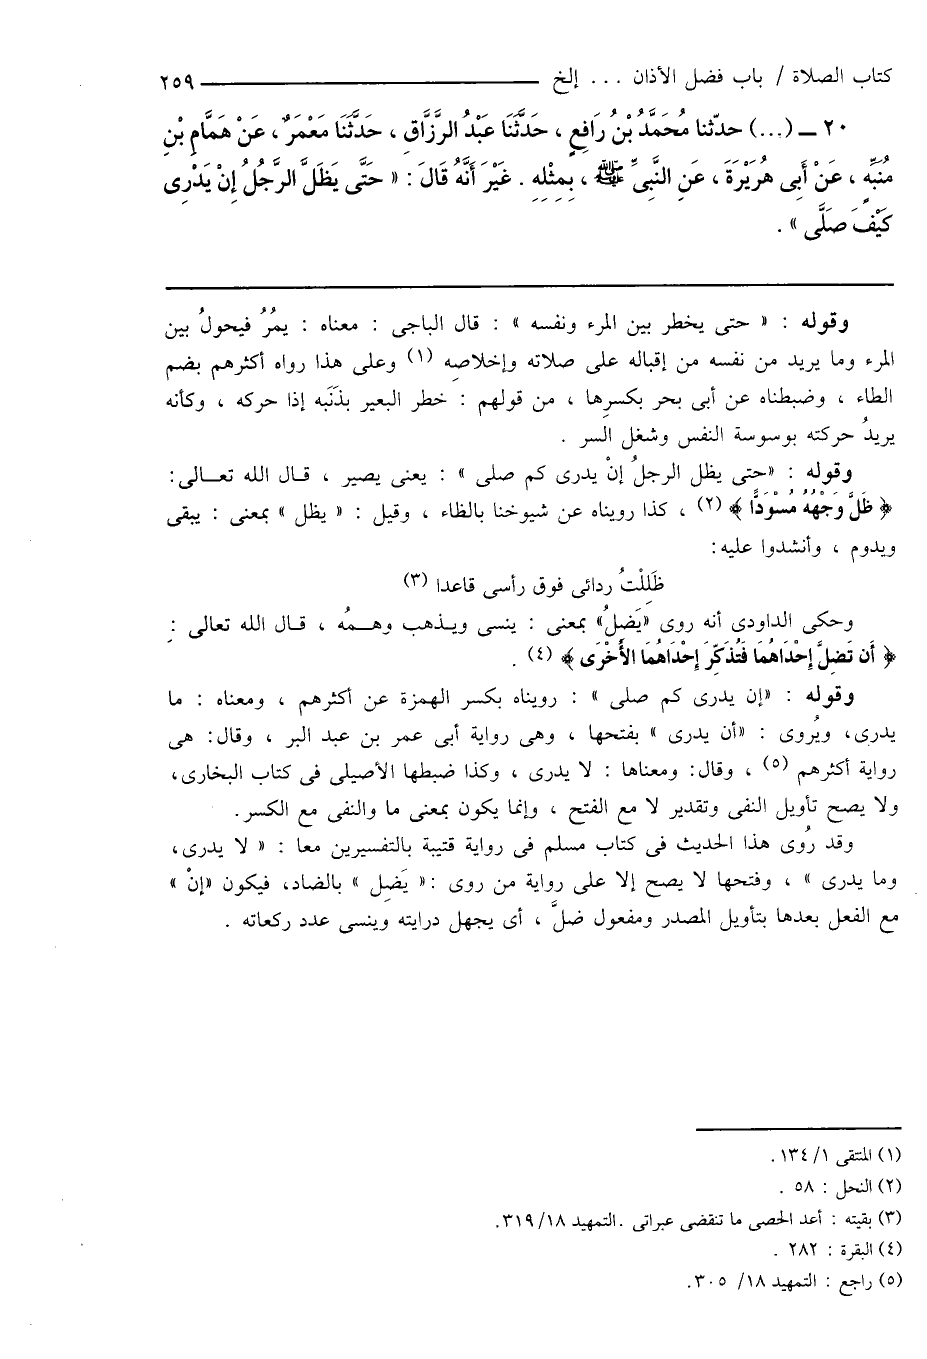 كتاب الصلاة / باب فضل الأذان ... إلخ ٢٥٩
٢٠ ــ (...) حدّثنا مُحَمَّدُ بْنُ رَافِعٍ ، حَدَّثَنَا عَبْدُ الرَّزَّاقِ ، حَدَّثَنَا مَعْمَرٌ ، عَنْ هَمَّامِ بْنِ
مُنَبِّهٍ ، عَنْ أَبِى هُرَيْرَةَ ، عَنِ النَّبِىِّ ﷺ ، بِمِثْلِهِ . غَيْرَ أَنَّهُ قَالَ : « حَتَّى يَظَلَّ الرَّجُلُ إِنْ يَدْرِى
كَيْفَ صَلَّى » .
وقوله : « حتى يخطر بين المرء ونفسه » : قال الباجى : معناه : يمُرُ فيحولُ بين
المرء وما يريد من نفسه من إقباله على صلاته وإخلاصِه (١) وعلى هذا رواه أكثرهم بضم
الطاء ، وضبطناه عن أبى بحر بكسرِها ، من قولهم : خطر البعير بذَنَبه إذا حركه ، وكأنه
يريدُ حركته بوسوسة النفس وشغل السر .
وقوله : «حتى يظل الرجلُ إنْ يدرى كم صلى » : يعنى يصير ، قـال الله تعـــالى:
﴿ ظَلَّ وَجْهُهُ مُسْوَدًّا ﴾ (٢) ، كذا رويناه عن شيوخنا بالظاء ، وقيل : « يظل » بمعنى : يبقى
ويدوم ، وأنشدوا عليه:
ظَلِلْتُ ردائى فوق رأسى قاعدا (٣)
وحكى الداودى أنه روى «يَضلُ» بمعنى : ينسى ويـذهب وهــمُه ، قـال الله تعالى :
﴿ أَن تَضِلَّ إِحْدَاهُمَا فَتُذَكِّرَ إِحْدَاهُمَا الأُخْرَى ﴾ (٤) .
وقوله : «إن يدرى كم صلى » : رويناه بكسر الهمزة عن أكثرهم ، ومعناه : ما
يدرى، ويُروى : «أن يدرى » بفتحها ، وهى رواية أبى عمر بن عبد البر ، وقال: هى
رواية أكثرهم (٥) ، وقال: ومعناها : لا يدرى ، وكذا ضبطها الأصيلى فى كتاب البخارى،
ولا يصح تأويل النفى وتقدير لا مع الفتح ، وإنما يكون بمعنى ما والنفى مع الكسر.
وقد رُوى هذا الحديث فى كتاب مسلم فى رواية قتيبة بالتفسيرين معا : « لا يدرى،
وما يدرى » ، وفتحها لا يصح إلا على رواية من روى :« يَضِل » بالضاد، فيكون «إنْ »
مع الفعل بعدها بتأويل المصدر ومفعول ضلَّ ، أى يجهل درايته وينسى عدد ركعاته .
(١) المنتقى ١/ ١٣٤ .
(٢) النحل : ٥٨ .
(٣) بقيته : أعد الحصى ما تنقضى عبراتى .التمهيد ١٨/ ٣١٩.
(٤) البقرة : ٢٨٢ .
(٥) راجع : التمهيد ١٨/ ٣٠٥.